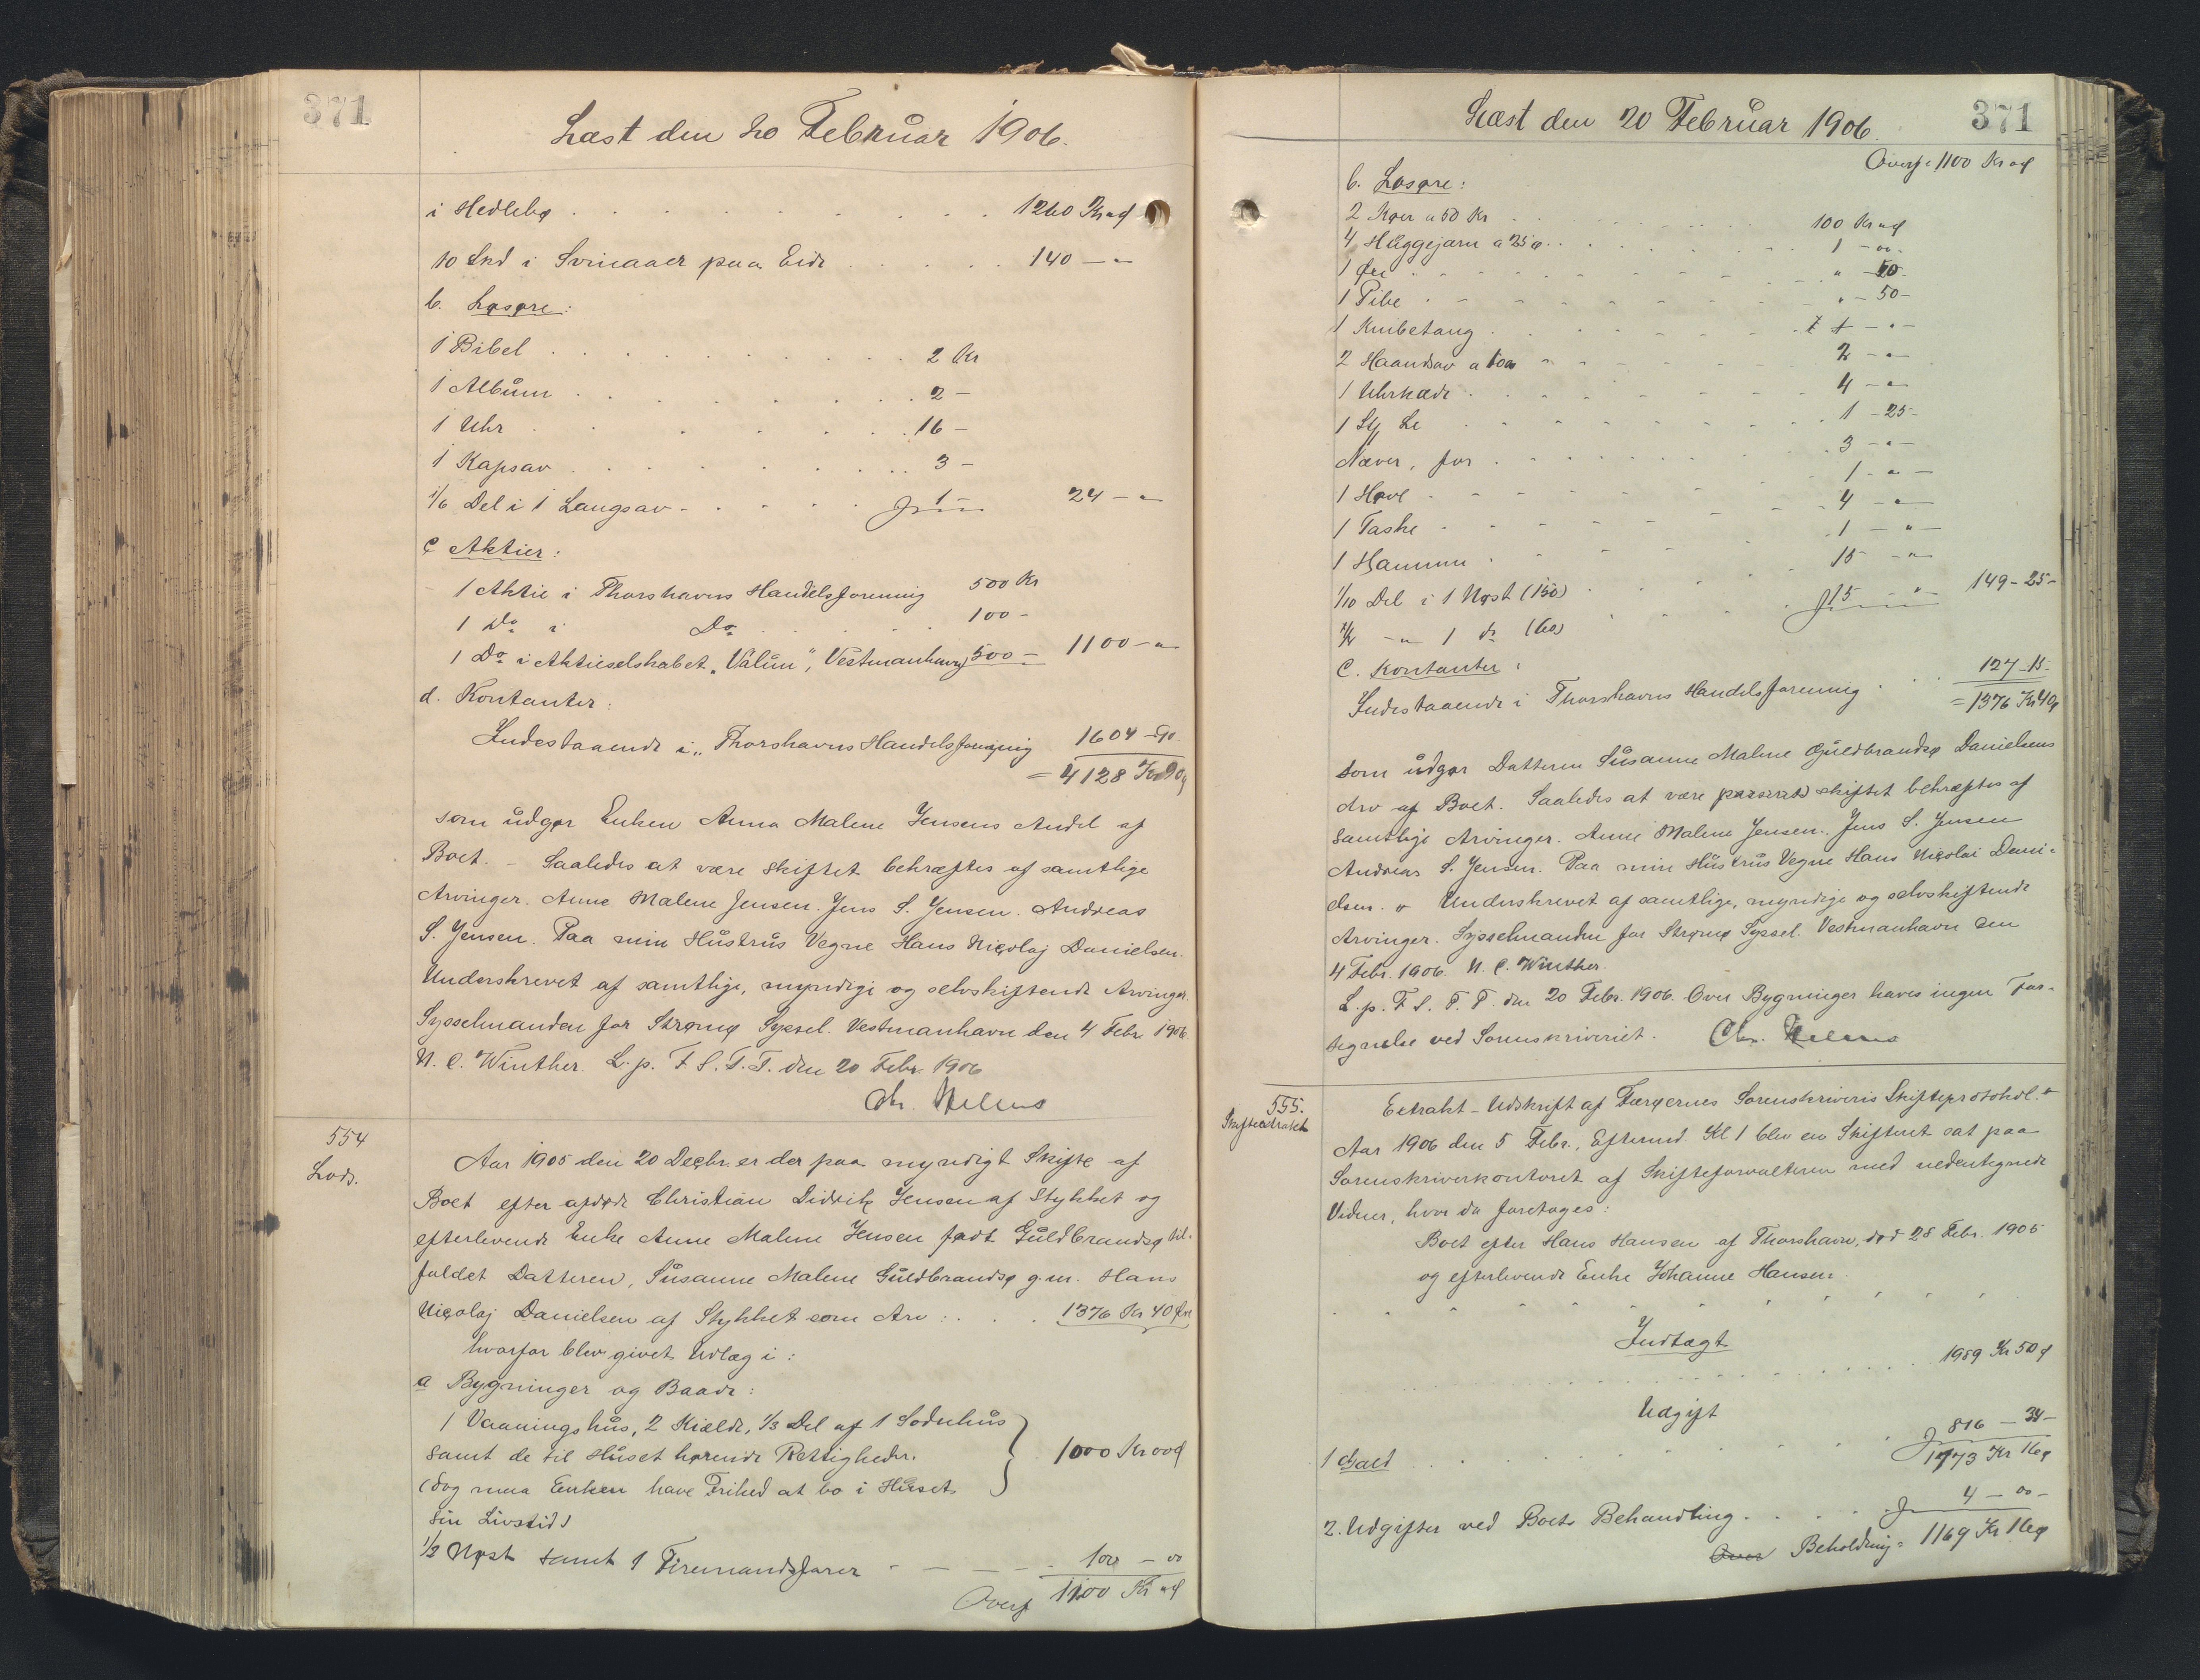 371
Læst den 20 Februar 1906.
i Hedlebø . . . 1260 Kr " ø
10 Lnd i Svinaaer paa Eide . . . 140 — "
b. Løsøre:
1 Bibel . . . 2 Kr
1 Album . . . 2 —
1 Uhr . . . 16 —
1 Kapsav . . . 3 —
1/6 Del i 1 Langsav . . . 1 — 24 — " —
c Aktier:
1 Aktie i Thorshavns Handelsforening 500 Kr
1 Do i Do . . . 100 -
1 Do i Aktieselskabet "Valun", Vestmanhavn 500 — 1100 — "
d. Kontanter:
Indestaaende i "Thorshavns Handelsforening 1604 - 90
= 4128 Kr 90 ø
som udgør Enken Anna Malene Jensens Andel af
Boet. – Saaledes at være skiftet bekræftes af samtlige
Arvinger. Anne Malene Jensen. Jens S. Jensen. Andreas
S. Jensen. Paa min Hustrus Vegne Hans Nicolaj Danielsen.
Underskrevet af samtlige, myndige og selvskiftende Arvinger.
Sysselmanden for Strømø Syssel. Vestmanhavn den 4 Febr. 1906.
N. C. Winther. L. p. F. S. T. T. den 20 Febr. 1906
Chr. Nelens
554
Lods.
Aar 1905 den 20 Decbr. er der paa myndigt Skifte af
Boet efter afdøde Christian Didrik Jensen af Stykket og
efterlevende Enke Anne Malene Jensen født Guldbrandsø til-
faldet Datteren, Susanne Malene Guldbrandsø g. m. Hans
Nicolaj Danielsen af Stykket som Arv: . . . 1376 Kr 40 Øre
hvorfor blev givet Udlæg i:
a Bygninger og Baade:
1 Vaaningshus, 2 Kjælde, 1/3 Del af 1 Sodnhus
samt de til Huset hørende Rettigheder.
(dog maa Enken have Frihed at bo i Huset 1000 Kr oo ø
sin Livstid)
1/2 Nøst samt 1 Firemandsfarer . . . 100 — oo
Overf 1100 Kr " ø
371
Læst den 20 Februar 1906.
Overf. 1100 Kr " ø
b. Løsøre:
2 Køer a 50 Kr . . . 100 Kr " ø
4 Huggejarn a 25 ø . . . 1 — oo -
1 Øxe . . . " — 50 -
1 Pibe . . . " — 50 -
1 Knibetang . . . 1 — " —
2 Haandsav a 1 oo . . . 2 — " —
1 Uhrkæde . . . 4 — " —
1 St. Le . . . 1 - 25 -
Næver, for . . . 3 — " —
1 Høvl . . . 1 — " —
1 Taske . . . 4 — " —
1 Hammer . . . 1 — " —
1/10 Del i 1 Nøst (150) . . . 15 — " —
— " 1 do (60) . . . 15 — " — 149 - 25 -
C. Kontanter:
Indestaaende i Thorshavns Handelsforening . . . 127 - 15 -
= 1376 Kr 40 ø
som udgør Datteren Susanne Malene Guldbrandsø Danielsens
Arv af Boet. Saaledes at være skiftet bekræftes af
samtlige Arvinger. Anne Malene Jensen. Jens S. Jensen
Andreas S. Jensen. Paa min Hustrus Vegne Hans Nicolai Dani-
elsen. Underskrevet af samtlige, myndige og selvskiftende
Arvinger. Sysselmanden for Strømø Syssel. Vestmanhavn den
4 Febr. 1906. N. C. Winther.
L. p. F. S. T. T. den 20 Febr. 1906. Over Bygninger haves ingen For-
tegnelse ved Sorenskriveriet. Chr. Nelens
555.
Skifteextrakt
Extrakt-Udskrift af Færøernes Sorenskriveris Skifteprotokol.
Aar 1906 den 5 Febr., Eftermd. Kl 1 blev en Skifteret sat paa
Sorenskriverkontoret af Skifteforvalteren med nedentegnede
Vidner, hvor da foretoges:
Boet efter Hans Hansen af Thorshavn, død 28 Febr. 1905
og efterlevende Enke Johanne Hansen.
Indtægt
. . . 1989 Kr 50 ø
Udgift
1 Gæld . . . 816 — 34 —
1173 Kr 16 ø
2. Udgifter ved Boets Behandling . . . 4 — oo —
Beholdning = 1169 Kr 16 ø